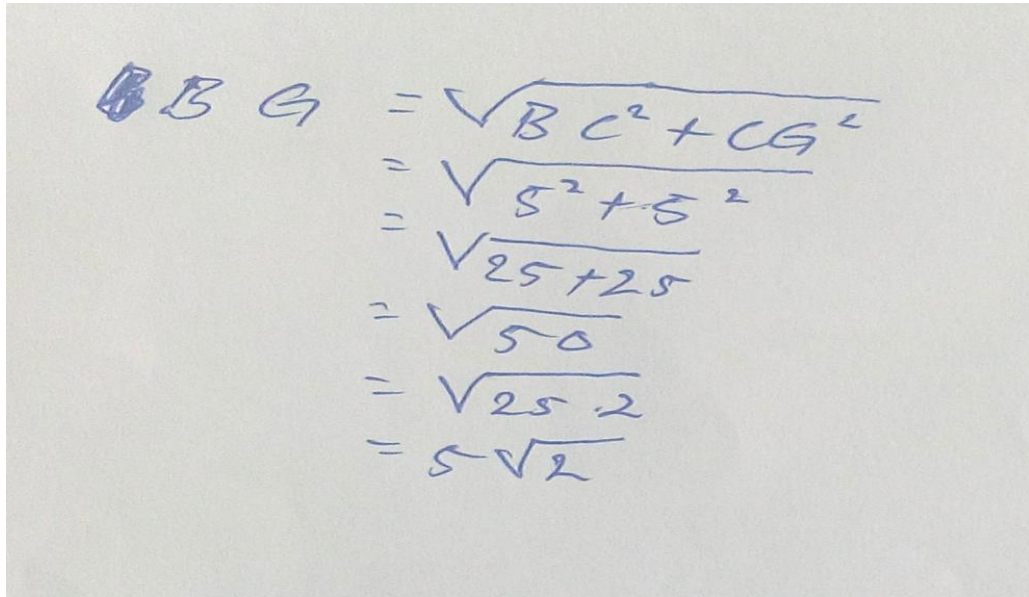 BG = √(BC² + CG²)
= √(5² + 5²)
= √(25 + 25)
= √50
= √(25 · 2)
= 5√2